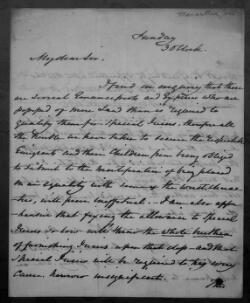 Sunday
3 OClock
My dear Sir,
I find on enquiry that there
are several Emancipists and Expirees who are
possessed of more Land than is required to
qualify them for Special Jurors. Therefore all
the trouble we have taken to secure the respectable
Emigrants and their Children from being obliged
to submit to the mortification of being placed
on an equality with some of the worst
will prove ineffectual. I am also
that paying the allowance to Special
Jurors
of furnishing Jurors upon that
Special Jurors will be required to try every
Cause however insignificant.